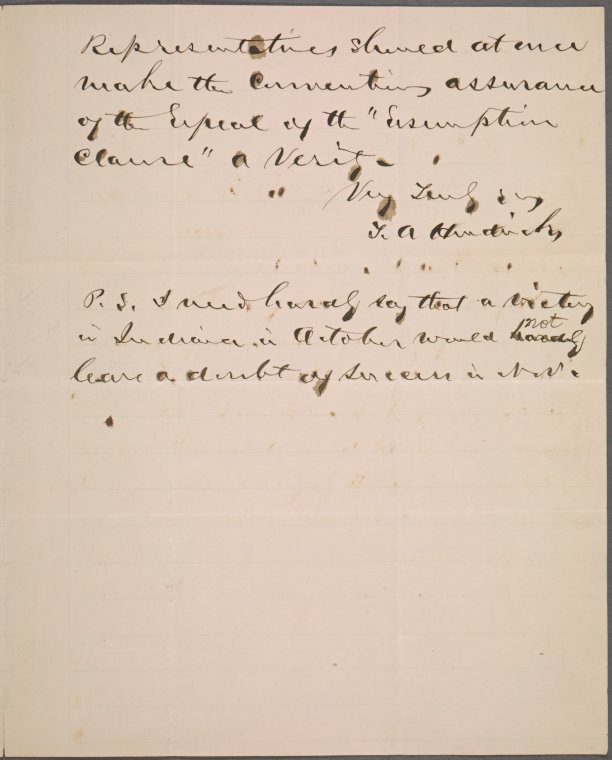 Representatives should at once
make the Conventions assurance
of the Repeal of the "Resumption
Clause" a Verity.
Very Truly yrs
T. A Hendricks
P. S. I need hardly say that a victory
in Indiana in October would not
leave a doubt of success in Nov'r